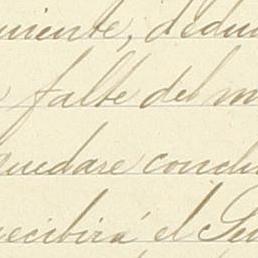 niente, dedu
falte del m
quedare conclu
recibirá el Se